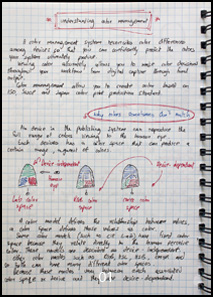 understanding color management
A color management system reconciles color differences
among devices so that you can confidently predict the colors
your system ultimately produces.
Viewing color accurately allows you to make color decisions
throughout your workflow from digital capture through final
output.
Color management allows you to create color based on
ISO, SWOP and Japan color print production standard.
Why colors sometimes don't match
No device in the publishing system can reproduce the
full range of colors viewable to the human eye.
Each device has a color space that can produce a
certain range or gamut of colors.
Device independent
human
eye
Device dependent
Lab color
space
RGB color
space
CMYK color
space
A color model defines the relationships between values,
a color space defines those values as color.
Some color models (such as CIE Lab) have fixed color
space because they relate directly to the human perceive
color. These models are described as device independent.
Other color models such as RGB, HSL, HSB, CMYK and
so forth can have many different color spaces.
Because these models vary between each associated
color space or device and they are device dependent.
01